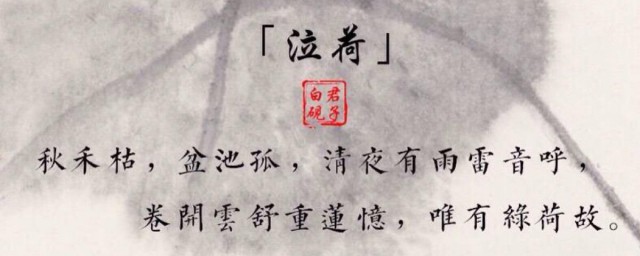 「泣荷」
君子
白硯
秋禾枯，盆池孤，清夜有雨雷音呼，
卷開雲舒重蓮憶，唯有綠荷故。